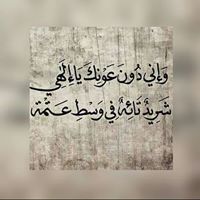 وَإنِي دُونَ عَونكَ يَا إلَهَي
شَرِيدٌ تَائِهٌ في وَسْطِ عَتْمَة